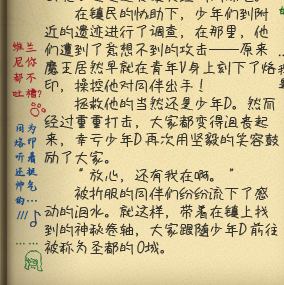 在镇民的协助下，少年们到附
近的遗迹进行了调查，在那里，他
们遭到了意想不到的攻击——原来
魔王居然早就在青年V身上刻下了烙
印，操控他对同伴出手！
拯救他的当然还是少年D。然而
经过重重打击，大家都变得沮丧起
来，幸亏少年D再次用坚毅的笑容鼓
励了大家。
“放心，还有我在啊。”
被折服的同伴们纷纷流下了感
动的泪水。就这样，带着在镇上找
到的神秘卷轴，大家跟随少年D前往
被称为圣都的O城。
维兰
尼你
都不
吐槽?
因为
烙印
听着
还挺
帅气
的…
///
……